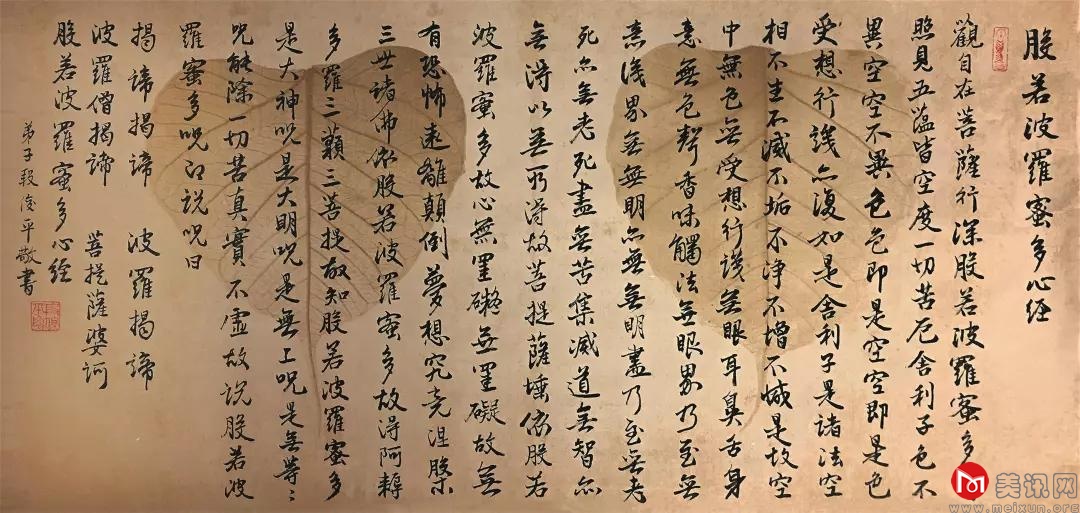 般若波羅蜜多心经
觀自在菩薩行深般若波羅蜜多
照見五蕴皆空度一切苦厄舍利子色不
異空空不異色色即是空空即是色
受想行識亦復如是舍利子是諸法空
相不生不滅不垢不净不增不减是故空
中無色無受想行識無眼耳鼻舌身
意無色聲香味觸法無眼界乃至無
意識界無無明亦無無明盡乃至無老
死亦無老死盡無苦集滅道無智亦
無得以無所得故菩提薩埵依般若
波羅蜜多故心無罣礙無罣礙故無
有恐怖遠離顛倒夢想究竟涅槃
三世諸佛依般若波羅蜜多故得阿耨
多羅三藐三菩提故知般若波羅蜜多
是大神咒是大明咒是無上咒是無等〻
咒能除一切苦真實不虛故說般若波
羅蜜多咒即說咒曰
揭諦揭諦 波羅揭諦
波羅僧揭諦 菩提薩婆訶
般若波羅蜜多心经
弟子段俊平敬書
美讯网
www.meixun.org